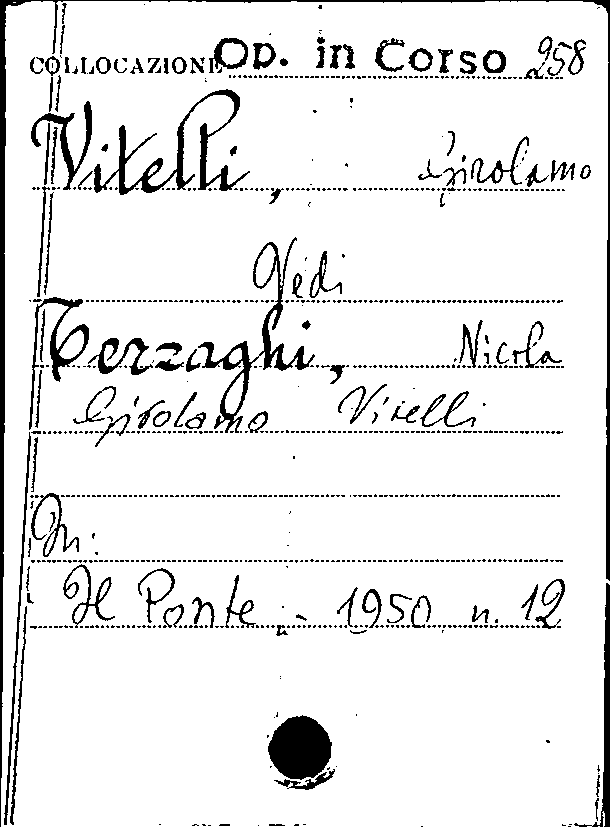 COLLOCAZIONE Op. in Corso 258
Vitelli, Girolamo
Vedi
Terzaghi, Nicola
Girolamo Vitelli
In:
Il Ponte - 1950 n. 12